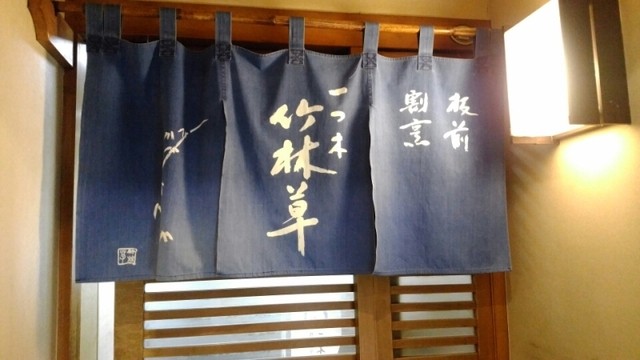 板前
割烹
一つ木
竹林草